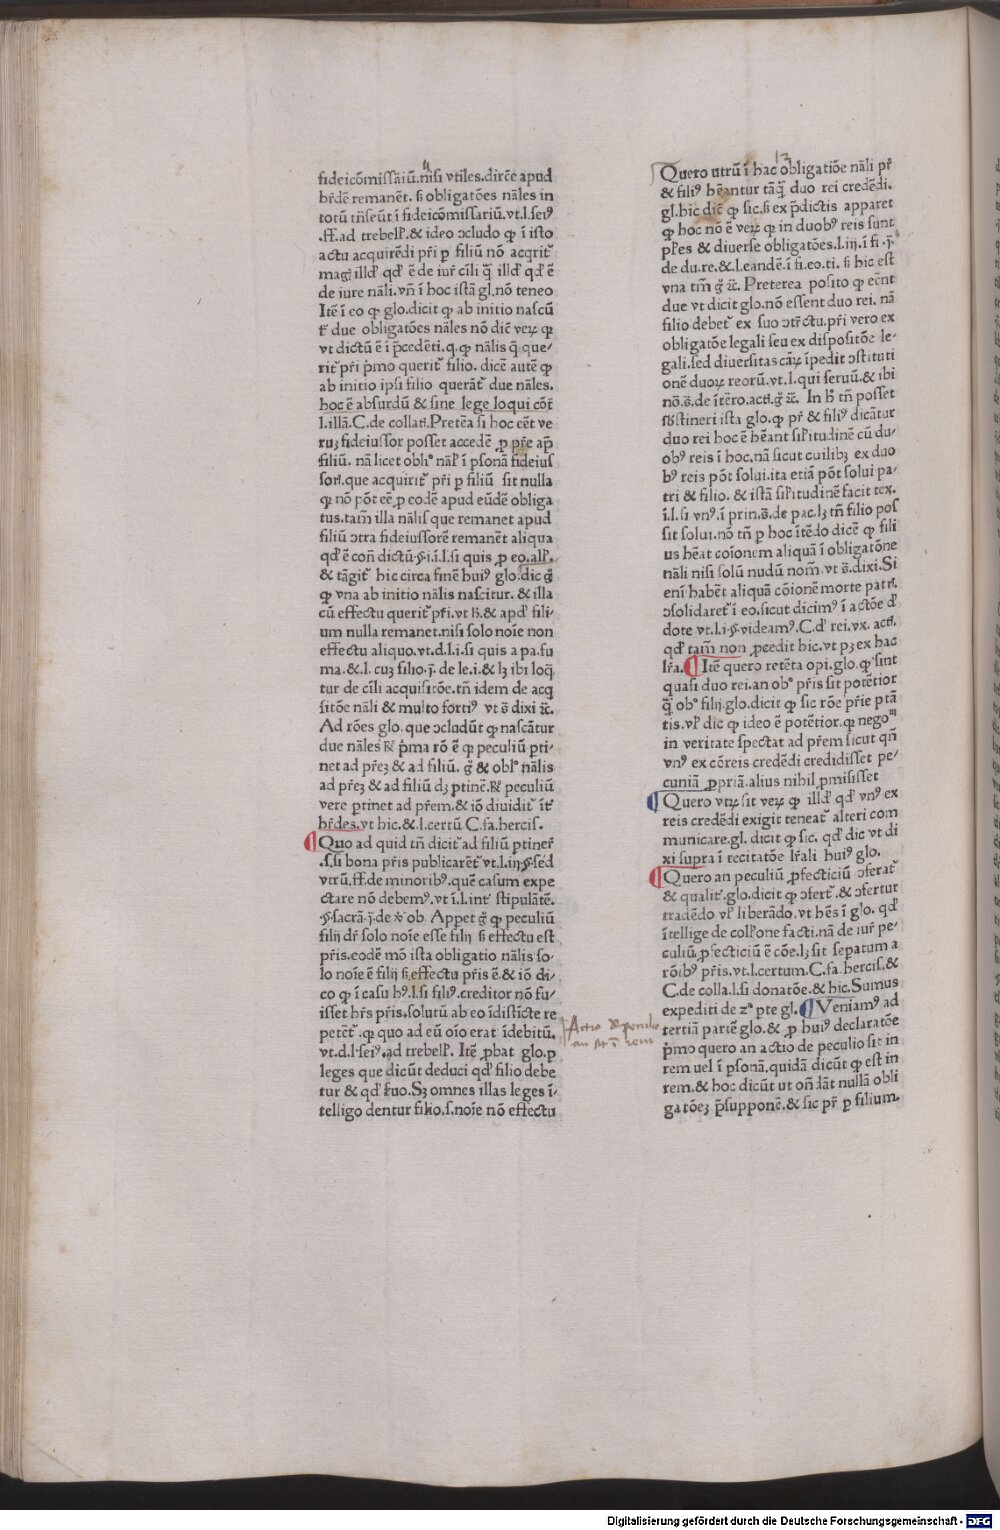 fideicōmissāiū.nisi vtiles.dirc̄e apud
hr̄dē remanēt. ẞ obligatōes nāles in
totū trāseūt ī fideicōmissariū.vt.l.sei⁹
.ff.ad trebell̄.& ideo ɔcludo ꝙ ī isto
actu acquirēdi pr̄i ꝑ filiū nō acqrit᷑
mag̨ illd̄ qd̄ ē de iur̄ cīli q̄ illd̄ qd̄ ē
de iure nāli.vn̄ ī hoc istā gl.nō teneo
Itē ī eo ꝙ glo.dicit ꝙ ab initio nascū
t᷑ due obligatōes nāles nō dic̄ veꝝ ꝙ
vt dictū ē ī p̄cedēti.q.ꝙ nālis q̄ que/
rit᷑ pr̄i p̄mo querit᷑ filio. dicē autē ꝙ
ab initio ipsi filio querāt᷑ due nāles.
hoc ē absurdū & sine lege loqui cōt̄
.l.illā.C.de collati.Pretēa si hoc eēt ve
ruꝫ fideiussor posset accedē ꝓ pr̄e ap̄
filiū. nā licet obl⁹ nāl̄ ī ꝑsonā fideius
sori.que acquirit᷑ pr̄i ꝑ filiū sit nulla
ꝗ nō pōt eē ꝓ eodē apud eūdē obliga
tus.tam̄ illa nālis que remanet apud
filiū ɔtra fideiussorē remanēt aliqua
qd̄ ē con̄ dictū.§.i.ī.l.si quis ꝓ eo.all̄.
& tāgit᷑ hic circa finē hui⁹ glo.dic g̊
ꝙ vna ab initio nālis nascitur. & illa
cū effectu querit᷑ pr̄i.vt ħ.& apd̄ fili-
um nulla remanet.nisi solo noīe non
effectu aliquo.vt.d.l.i.si quis a pa.fu
ma.& l. cuꝫ filio.j̄.de le.i.& lꝫ ibi loq̄
tur de cīli acquisitōe.tn̄ idem de acq̄
sitōe nāli & multo forti⁹ vt s̄ dixi ꝛc̄.
Ad rōes glo.que ɔcludūt ꝙ nascātur
due nāles ℟ p̄ma rō ē ꝙ peculiū ꝑti-
net ad pr̄eꝫ & ad filiū. g̊ & obl⁹ nālis
ad pr̄eꝫ & ad filiū dꝫ ꝑtinē.℟ peculiū
vere ꝑtinet ad pr̄em.& iō diuidit᷑ īt᷑
hr̄des.vt hic.& l.certū C.fa.hercis.
¶Quo ad quid tn̄ dicit᷑ ad filiū ꝑtiner̄
.s.si bona pr̄is publicarēt᷑ vt.l.iij.§.sed
vtrū.ff.de minorib⁹.quē casum expe
ctare nō debem⁹.vt ī.l.int᷑ stipulātē.
.§.sacrā.j̄.de v̄ ob. Appet g̊ ꝙ peculiū
filij dr̄ solo noīe esse filij ẞ effectu est
pr̄is.eodē mō ista obligatio nālis so-
lo noīe ē filij ẞ effectu pr̄is ē.& iō di-
co ꝙ ī casu h⁹.l.si fili⁹.creditor nō fu/
isset hr̄s pr̄is.solutū ab eo īdistīcte re
petēt᷑.ꝗ quo ad eū oīo erat īdebitū.
vt.d.l.sei⁹.ad trebell̄. Itē ꝓbat glo.ꝑ
leges que dicūt deduci qd̄ filio debe
tur & qd̄ suo.Sꝫ omnes illas leges ī-
telligo dentur filio.s.noīe nō effectu
Quero utrū ī hac obligatiōe nāli pr̄
& fili⁹ hēantur tāq̄ duo rei credēdi.
gl.hic dic̄ ꝙ sic.ẞ ex p̄dictis apparet
ꝙ hoc nō ē veꝝ ꝗ in duob⁹ reis sunt
pl̄es & diuerse obligatōes.l.iij.ī fi .j̄.
de du.re.& l.eandē.ī fi.eo.ti. ẞ hic est
vna tm̄ g̊ ꝛc̄. Preterea posito ꝙ eēnt
due vt dicit glo.nō essent duo rei. nā
filio debet᷑ ex suo ɔtr̄ctu.pr̄i vero ex
obligatōe legali seu ex dispositōe le-
gali.sed diuersitas cāꝝ īpedit ɔstituti
onē duoꝝ reorū.vt.l.qui seruū.& ibi
nō.s̄.de ītēro.acti.g̊ ꝛc̄. In ħ tn̄ posset
sb̄stineri ista glo.ꝙ pr̄ & fili⁹ dicātur
duo rei hoc ē hēant sil̄itudinē cū du-
ob⁹ reis ī hoc.nā sicut cuilibꝫ ex duo
b⁹ reis pōt solui.ita etiā pōt solui pa-
tri & filio. & istā sil̄itudinē facit tex.
ī.l.si vn⁹.ī prin.s̄.de pac.lꝫ tn̄ filio pos
sit solui.nō tn̄ ꝑ hoc ītēdo dicē ꝙ fili
us hēat coīonem aliquā ī obligatōne
nāli nisi solū nudū nom̄.vt s̄.dixi.Si
enī habēt aliquā cōionē morte patr̄.
ɔsolidaret᷑ ī eo.sicut dicim⁹ ī actōe d̄
dote vt.l.i.§.videam⁹.C.d̄ rei.vx. acti.
qd̄ tam̄ non ꝓcedit hic.vt pꝫ ex hac
lr̄a.¶Itē quero retēta opi.glo.ꝙ sint
quasi duo rei.an ob⁹ pr̄is sit potētior
q̄ ob⁹ filij.glo.dicit ꝙ sic rōe pr̄ie ptā
tis.vl̄ dic ꝙ ideo ē potētior.ꝗ nego
in veritate spectat ad pr̄em sicut qn̄
vn⁹ ex cōreis credēdi credidisset pe-
cuniā ꝓpriā.alius nihil ꝓmisisset
¶Quero vtꝝ sit veꝝ ꝙ illd̄ qd̄ vn⁹ ex
reis credēdi exigit teneat᷑ alteri com
municare.gl. dicit ꝙ sic. qd̄ dic vt di
xi supra ī recitatōe lr̄ali hui⁹ glo.
¶Quero an peculiū ꝓfecticiū ɔferat᷑
& qualit᷑.glo.dicit ꝙ ɔfert᷑.& ɔfertur
tradēdo vl̄ liberādo.vt hēs ī glo. qd̄
ītellige de coll̄one facti.nā de iur̄ pe/
culiū ꝓfecticiū ē cōe.lꝫ sit sepatum a
rōib⁹ pr̄is.vt.l.certum.C.fa.hercis.&
C.de colla.l.si donatōe.& hic.Sumus
expediti de zª pte gl.¶Veniam⁹ ad
tertiā partē glo.& ꝓ hui⁹ declaratōe
p̄mo quero an actio de peculio sit in
rem uel ī ꝑsonā.quidā dicūt ꝙ est in
rem.& hoc dicūt ut on̄dāt nullā obli
gatōeꝫ p̄supponē.& sic pr̄ ꝑ filium.
Actio de peculio
an sit ī rem
Digitalisierung gefördert durch die Deutsche Forschungsgemeinschaft - DFG